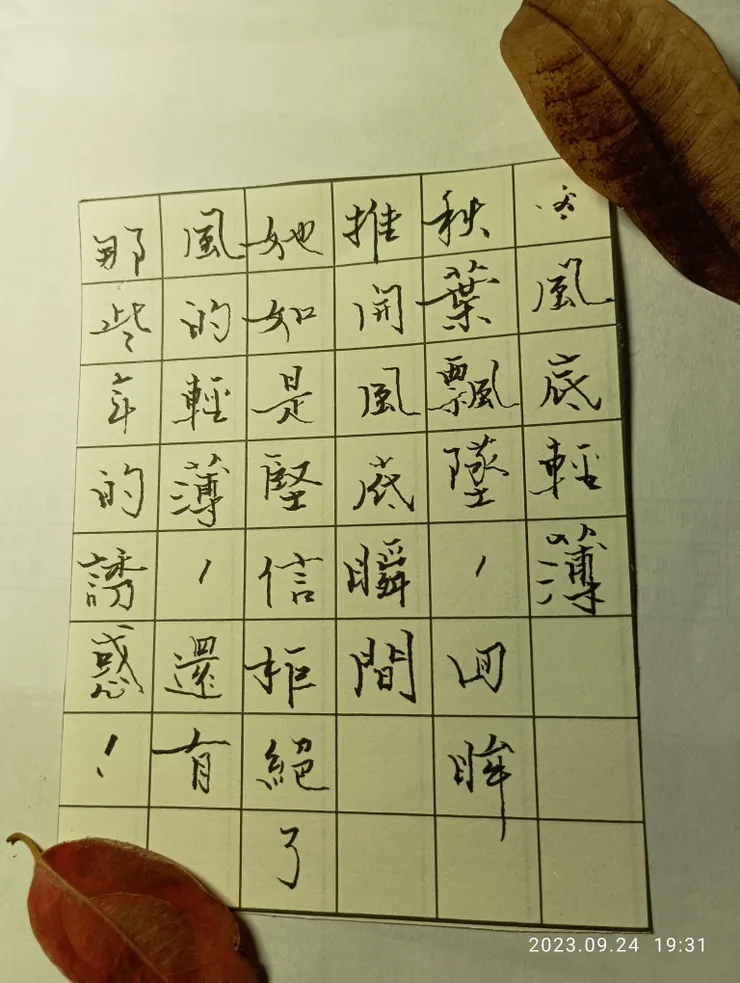 風底輕薄
秋葉飄墜，回眸
推開風底瞬間
她如是堅信拒絕了
風的輕薄，還有
那些年的誘惑！
2023.09.24 19:31